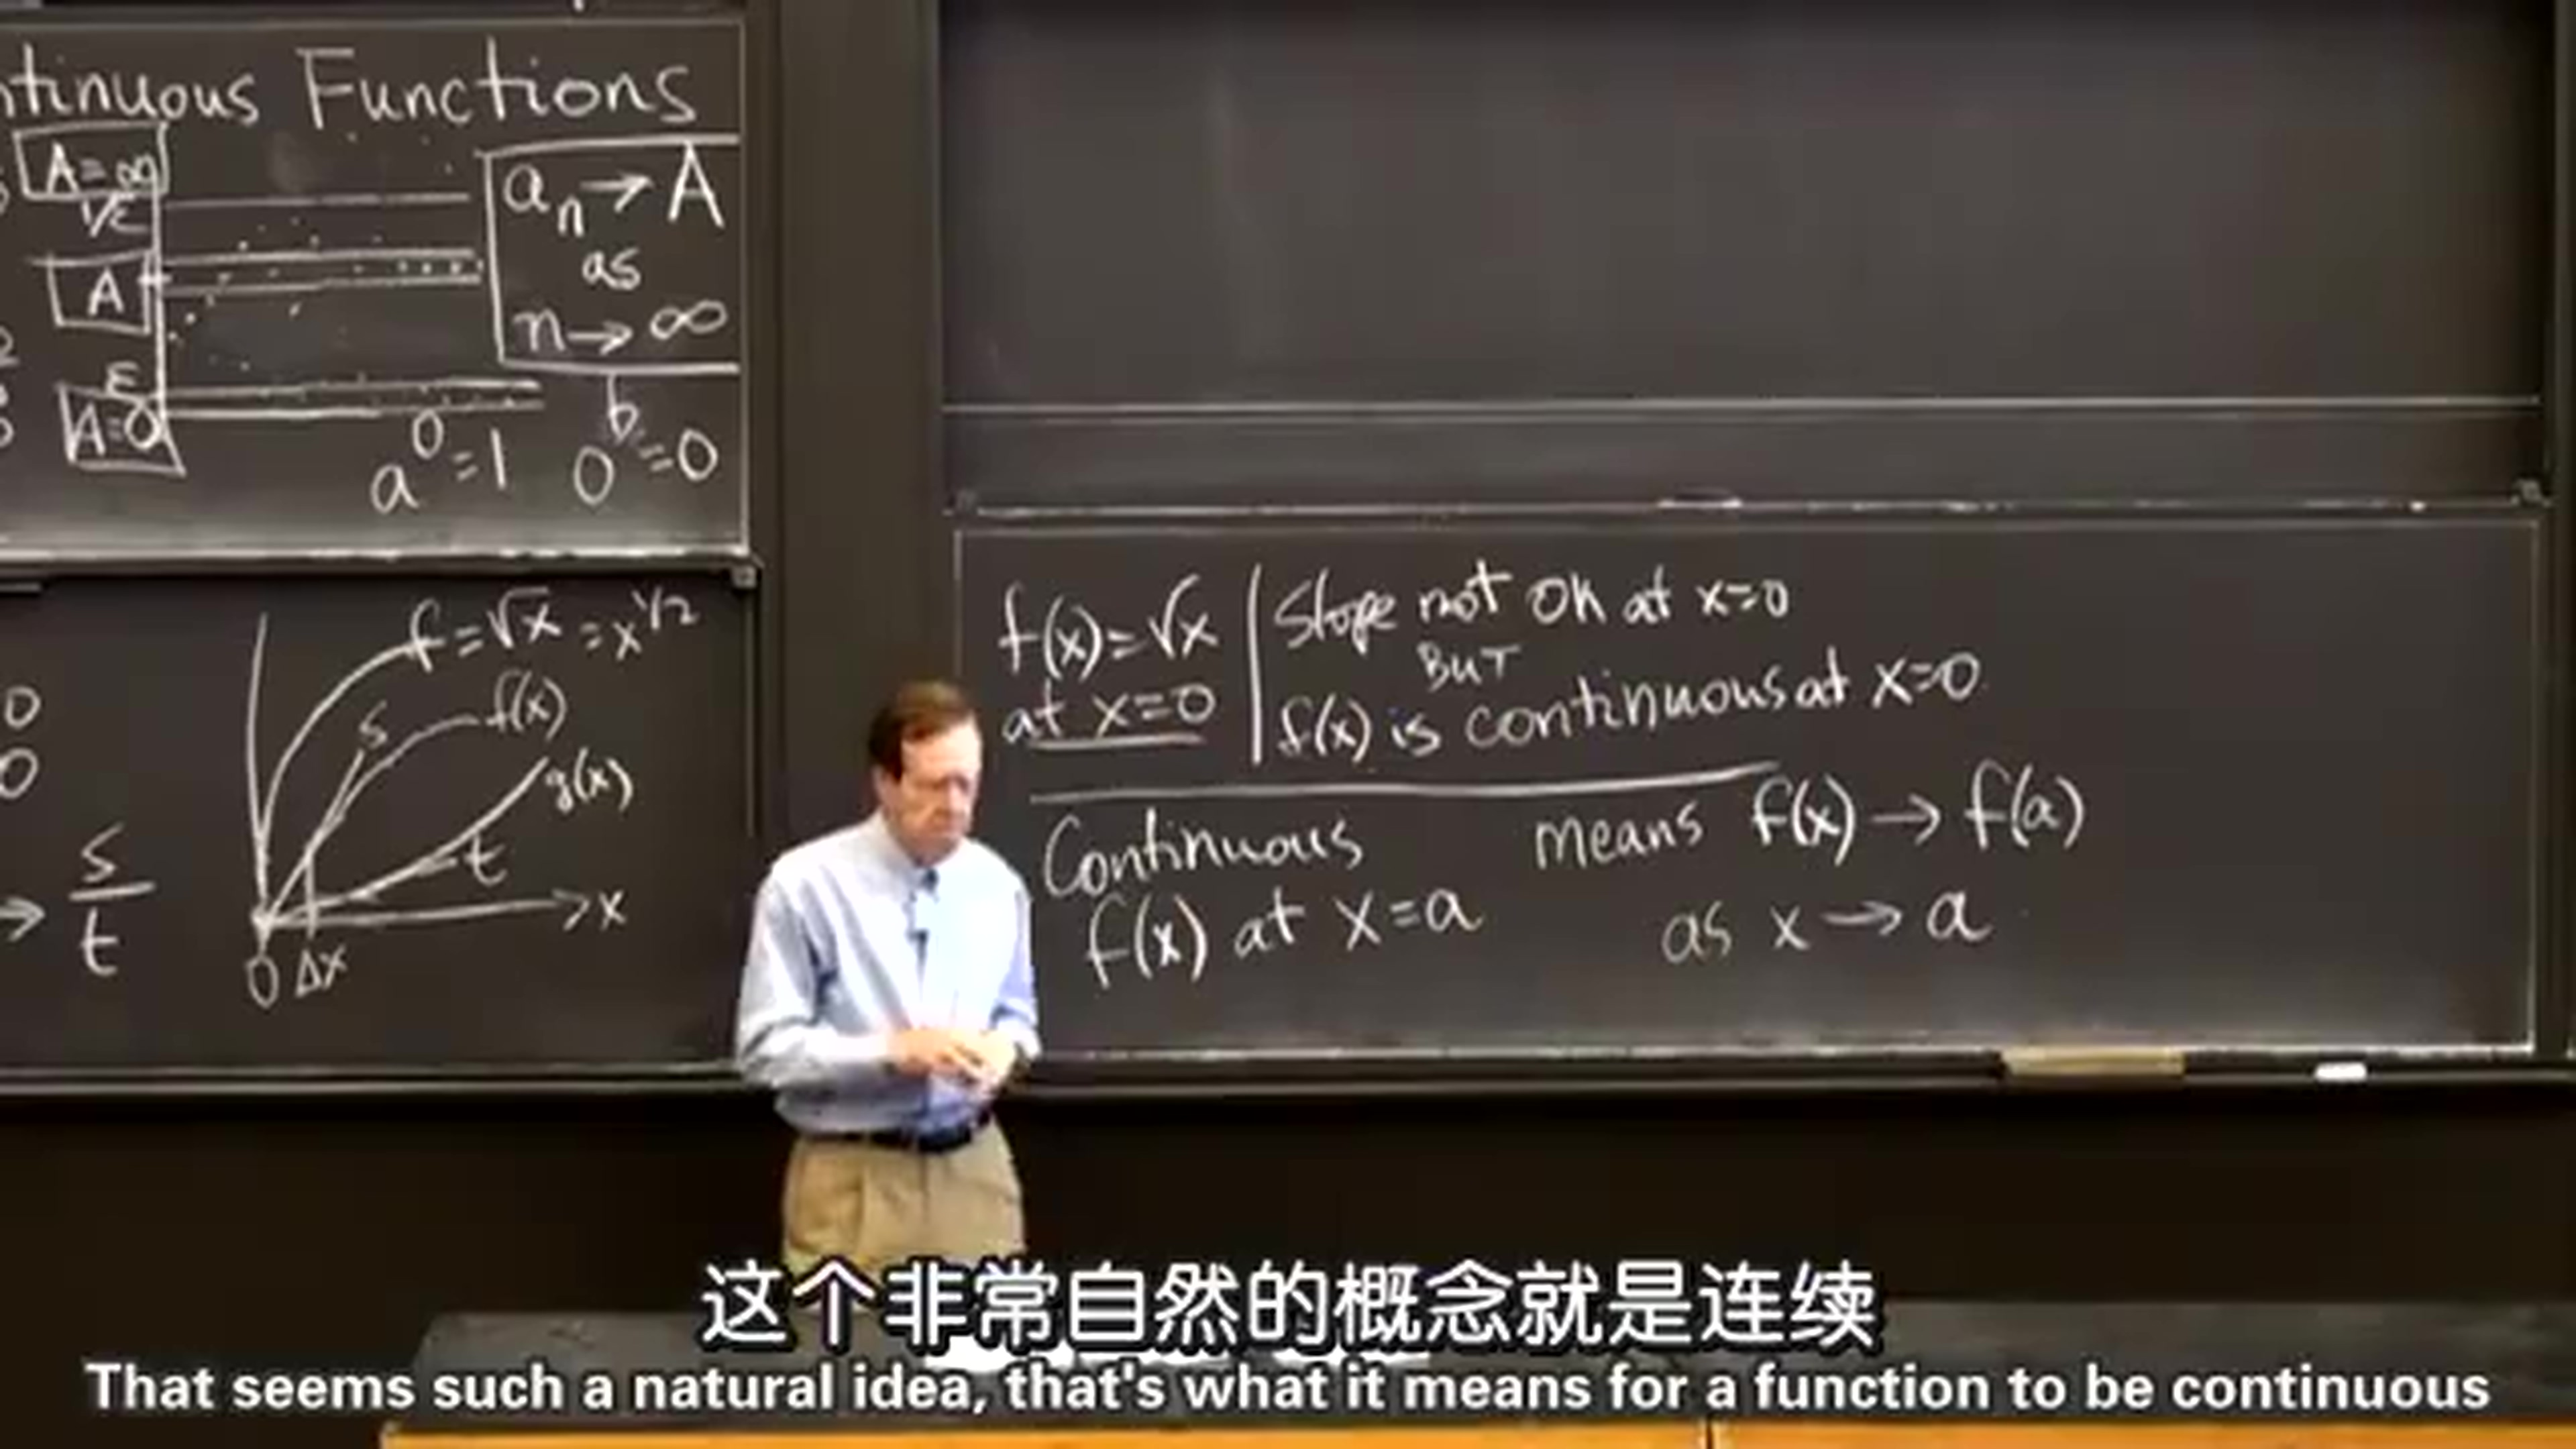 Functions
A=∞
1/ε
A
ε
A=0
aₙ→A
as
n→∞
a⁰=1
0ᵇ=0
0
0
→ s/t
f=√x=x^1/2
s
f(x)
g(x)
t
x
0 Δx
f(x)=√x
at x=0
Slope not OK at x=0
BUT
f(x) is continuous at x=0
Continuous
f(x) at x=a
means f(x)→f(a)
as x→a
这个非常自然的概念就是连续
That seems such a natural idea, that's what it means for a function to be continuous